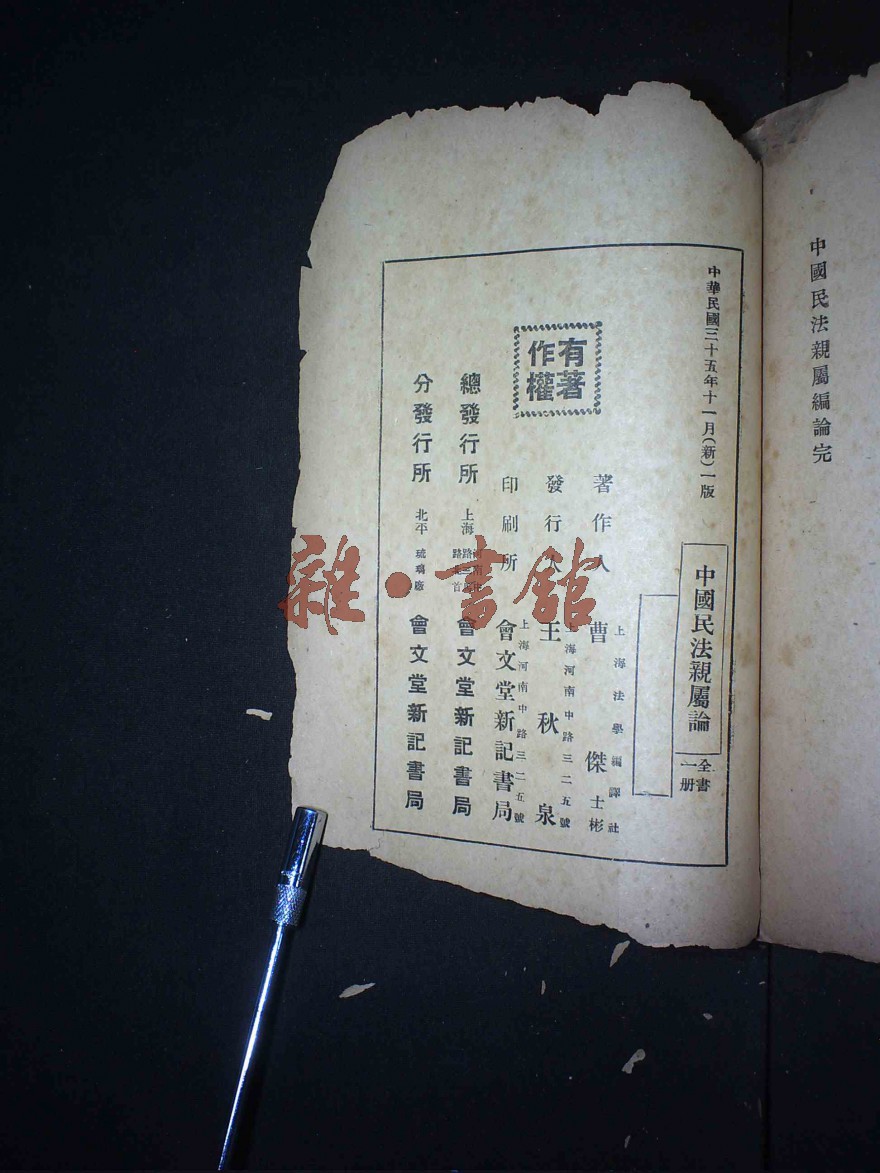 中國民法親屬編論完
中華民國三十五年十一月(新)一版
中國民法親屬論
全書
一册
有著
作權
上海法學編譯社
著作人 曹傑 士彬
上海河南中路三二五號
發行人 王秋泉
上海河南中路三二五號
印刷所 會文堂新記書局
總發行所 上海 會文堂新記書局
分發行所 北平 琉璃廠 會文堂新記書局
雜·書舘